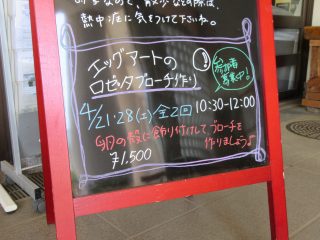 なので、散歩などの際は、
熱中症に気をつけて下さいね。
エッグアートの
ロゼッタブローチ作り
参加者
募集中!
4/21・28(土)全2回 10:30-12:00
卵の殻に飾り付けして ブローチを
作りましょう♪
¥1,500